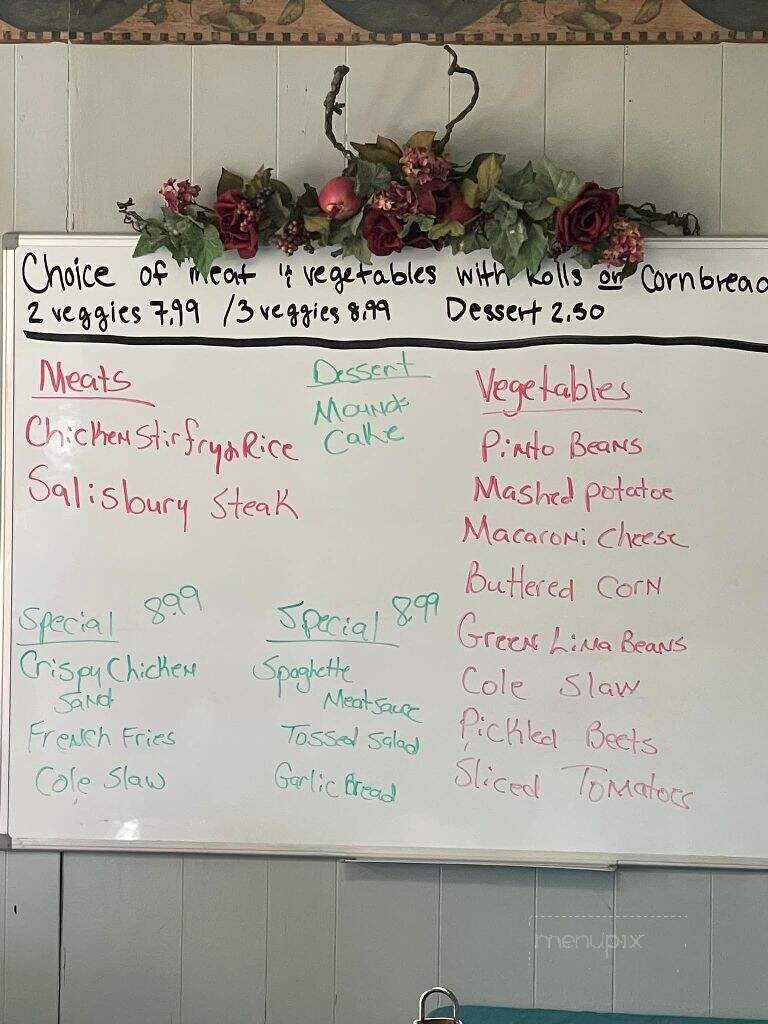 Choice of meat & vegetables with Rolls or Cornbread
2 veggies 7.99 / 3 veggies 8.99 Dessert 2.50
Meats
Chicken Stir fry & Rice
Salisbury Steak
Dessert
Mounds
Cake
Vegetables
Pinto Beans
Mashed potatoe
Macaroni Cheese
Buttered Corn
Green Lima Beans
Cole Slaw
Pickled Beets
Sliced Tomatoes
Special 8.99
Crispy Chicken
Sand
French Fries
Cole Slaw
Special 8.99
Spaghette
Meat sauce
Tossed Salad
Garlic Bread
menupix